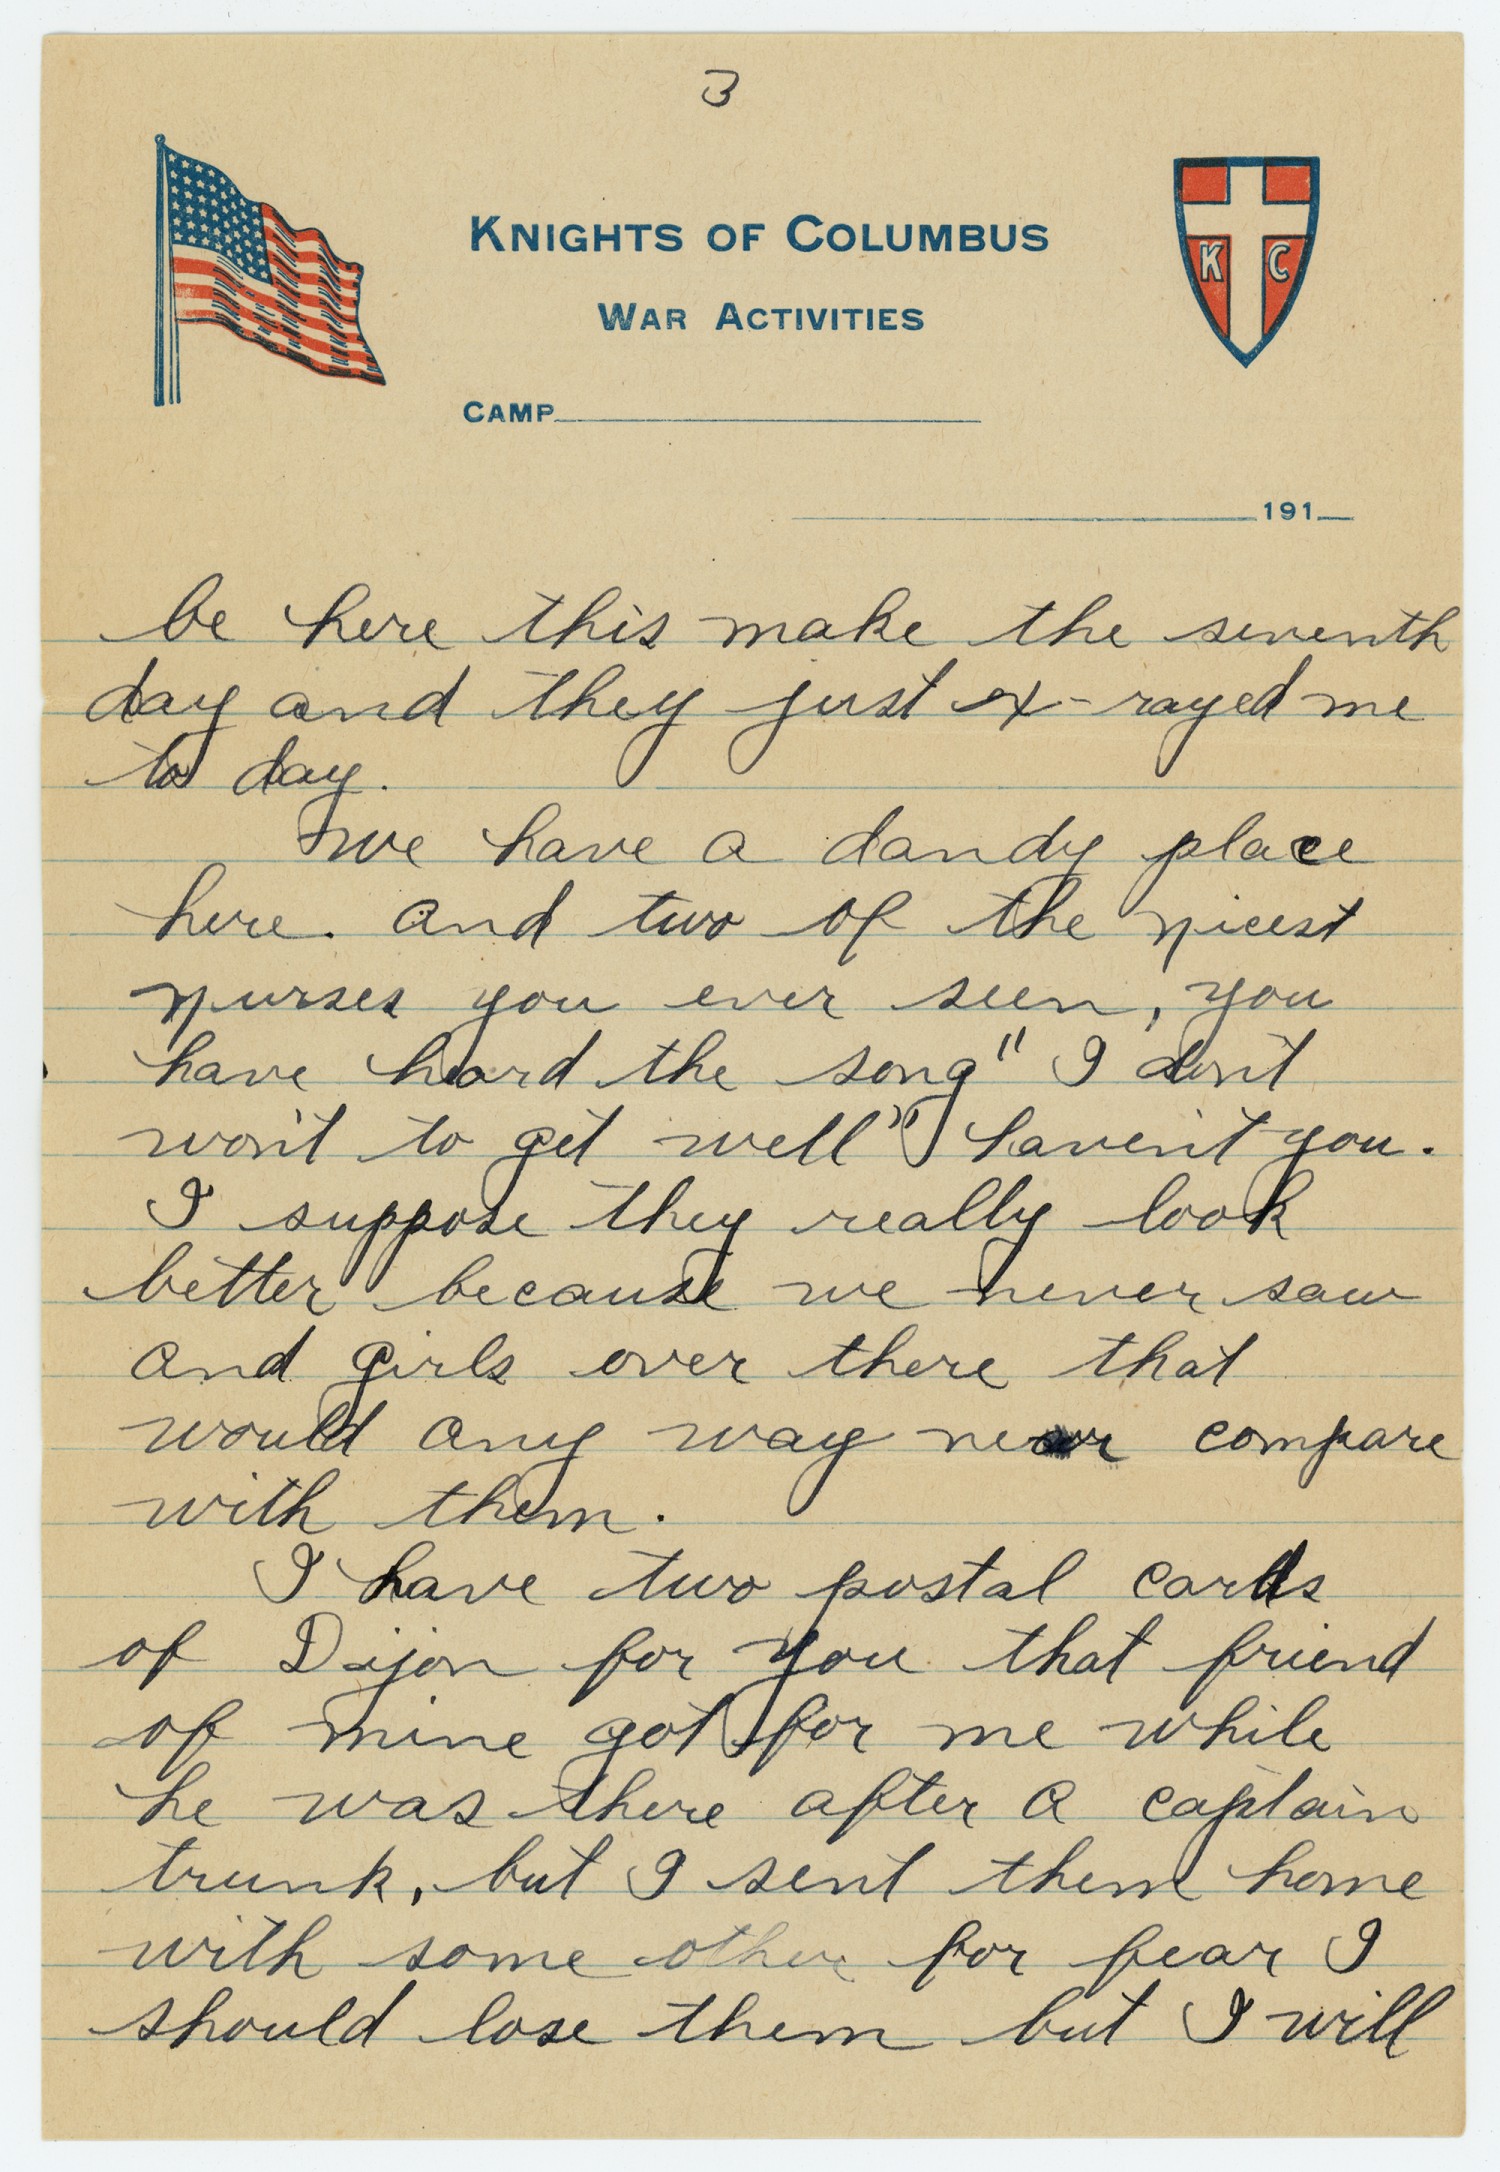 3
KNIGHTS OF COLUMBUS
WAR ACTIVITIES
K C
CAMP
191
be here this make the seventh
day and they just x-rayed me
to day.
we have a dandy place
here. and two of the nicest
nurses you ever seen, you
have heard the song" I don't
won't to get well" haven't you.
I suppose they really look
better because we never saw
and girls over there that
would any way near compare
with them.
I have two postal cards
of Dijon for you that friend
of mine got for me while
he was there after a captain
trunk, but I sent them home
with some other for fear I
should lose them but I will